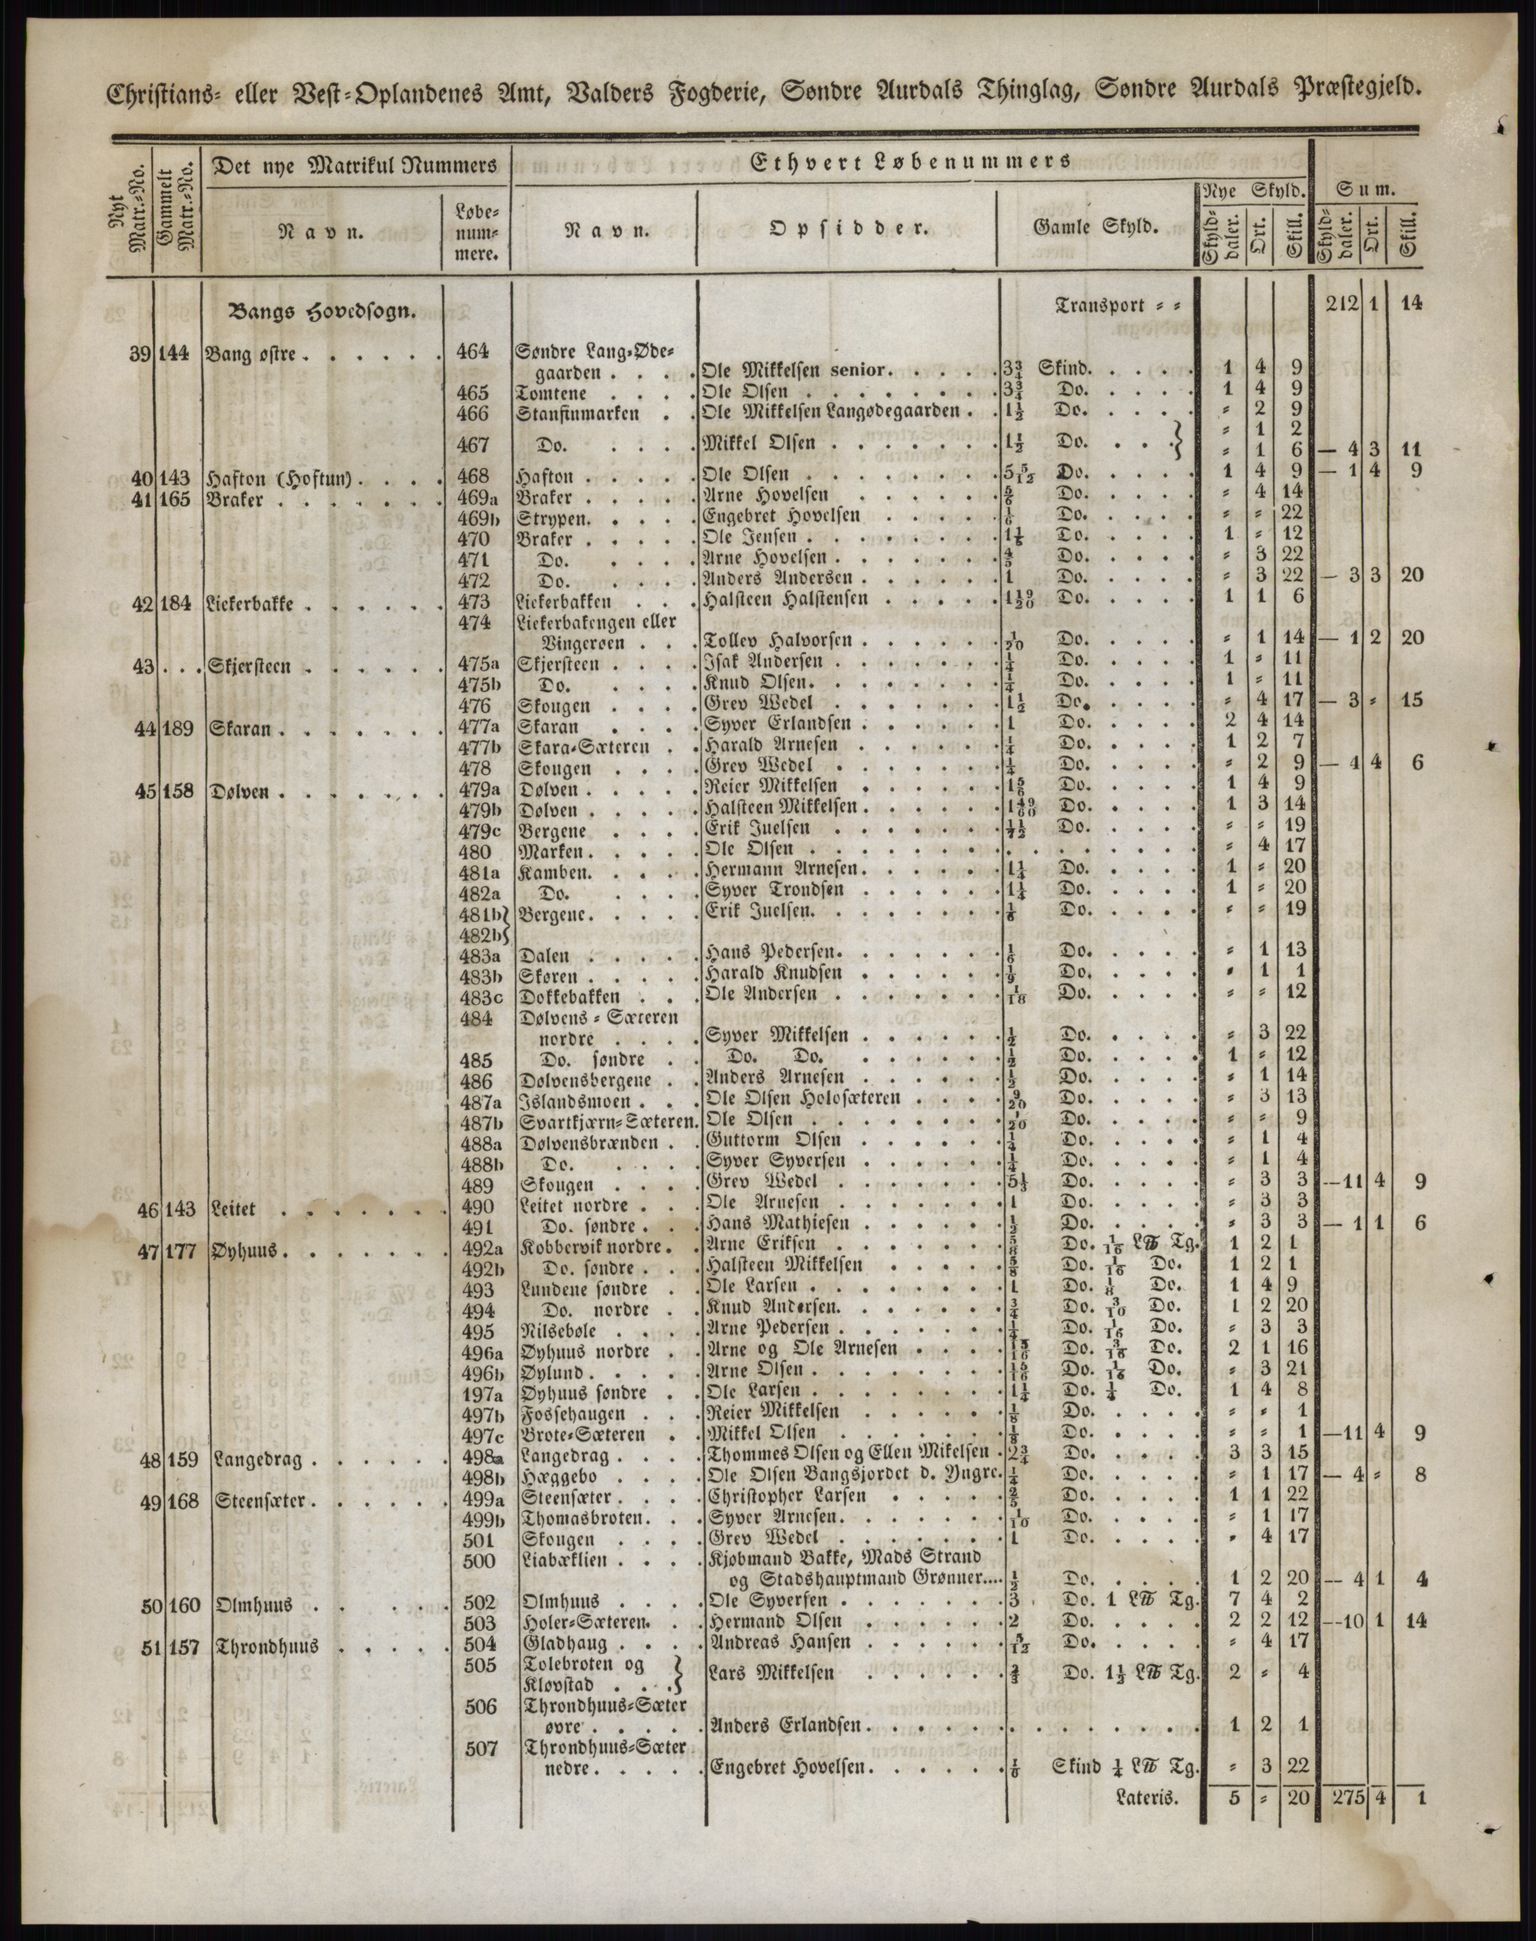 Christians- eller Vest-Oplandenes Amt, Valders Fogderie, Søndre Aurdals Thinglag, Søndre Aurdals Præstegjeld.
Nyt Matr.-No. Gammelt Matr.-No. Det nye Matrikul Nummers Ethvert Løbenummers
Navn. Løbe-num-mere. Navn. Opsidder. Gamle Skyld. Nye Skyld. Sum.
Skyld-daler. Ort. Skill. Skyld-daler. Ort. Skill.
Bangs Hovedsogn. Transport - - 212 1 14
39 144 Bang østre . . . . . . 464 Søndre Lang-Øde-
gaarden . . . . Ole Mikkelsen senior. . . . . 3¾ Skind. . . . . 1 4 9
465 Tomtene . . . . Ole Olsen . . . . . . . . 3¾ Do. . . . . 1 4 9
466 Stansinmarken . . Ole Mikkelsen Langødegaarden . . 1½ Do. . . . . - 2 9
- 1 2
467 Do. . . . . Mikkel Olsen . . . . . . . 1½ Do. . . . } - 1 6 — 4 3 11
40 143 Hafton (Hoftun) . . . . 468 Hafton . . . . . Ole Olsen . . . . . . . . 5 5/12 Do. . . . . 1 4 9 — 1 4 9
41 165 Braker . . . . . . . 469a Braker . . . . . Arne Hovelsen . . . . . . ⅚ Do. . . . . - 4 14
469b Strypen. . . . . Engebret Hovelsen . . . . . ⅙ Do. . . . . - - 22
470 Braker . . . . . Ole Jensen . . . . . . . . 1⅕ Do. . . . . 1 - 12
471 Do. . . . . Arne Hovelsen . . . . . . . ⅘ Do. . . . . - 3 22
472 Do. . . . . Anders Andersen . . . . . . 1 Do. . . . . - 3 22 — 3 3 20
42 184 Liekerbakke . . . . . . 473 Liekerbakken . . . Halsteen Halstensen . . . . . 1 19/20 Do. . . . . 1 1 6
474 Liekerbakengen eller
Vingeroen . . . Tollev Halvorsen . . . . . . 1/20 Do. . . . . - 1 14 — 1 2 20
43 . . . Skjersteen . . . . . . 475a Skjersteen . . . . Isak Andersen . . . . . . . ¼ Do. . . . . 1 - 11
475b Do. . . . . Knud Olsen. . . . . . . . ¼ Do. . . . . 1 - 11
476 Skougen . . . . Grev Wedel . . . . . . . 1½ Do. . . . . - 4 17 — 3 - 15
44 189 Skaran . . . . . . . 477a Skaran . . . . Syver Erlandsen . . . . . . 1 Do. . . . . 2 4 14
477b Skara-Sæteren . . Harald Arnesen . . . . . . ¼ Do. . . . . 1 2 7
478 Skougen . . . . Grev Wedel . . . . . . . ¼ Do. . . . . - 2 9 — 4 4 6
45 158 Dølven . . . . . . . 479a Dølven . . . . . Reier Mikkelsen . . . . . . 1⅚ Do. . . . . 1 4 9
479b Dølven . . . . . Halsteen Mikkelsen . . . . . . 1 49/60 Do. . . . . 1 3 14
479c Bergene . . . . Erik Juelsen . . . . . . . Do. . . . . - - 19
480 Marken. . . . . Ole Olsen . . . . . . . . . . . . . . . - 4 17
481a Kamben. . . . . Hermann Arnesen. . . . . . 1¼ Do. . . . . 1 - 20
482a Do. . . . . Syver Trondsen . . . . . . 1¼ Do. . . . . 1 - 20
481b} Bergene. . . . . Erik Juelsen. . . . . . . . Do. . . . . - - 19
482b}
483a Dalen . . . . . Hans Pedersen. . . . . . . ⅙ Do. . . . . - 1 13
483b Skøren . . . . . Harald Knudsen . . . . . . 1/9 Do. . . . . - 1 1
483c Dokkebakken . . . Ole Andersen . . . . . . . 1/18 Do. . . . . - - 12
484 Dølvens - Sæteren
nordre . . . . Syver Mikkelsen . . . . . . ½ Do. . . . . - 3 22
485 Do. søndre . . Do. Do. . . . . . . ½ Do. . . . . 1 - 12
486 Dølvensbergene . . Anders Arnesen . . . . . . ½ Do. . . . . - 1 14
487a Islandsmoen . . . Ole Olsen Holosæteren . . . . 9/20 Do. . . . . - 3 13
487b Svartkjærn-Sæteren. Ole Olsen . . . . . . . . 1/20 Do. . . . . - - 9
488a Dølvensbrænden . . Guttorm Olsen . . . . . . ¼ Do. . . . . - 1 4
488b Do. . . . . Syver Syversen . . . . . . ¼ Do. . . . . - 1 4
489 Skougen . . . . Grev Wedel . . . . . . . 5⅓ Do. . . . . - 3 3 —11 4 9
46 143 Leitet . . . . . . . 490 Leitet nordre . . . Ole Arnesen . . . . . . . 1 Do. . . . . - 3 3
491 Do. søndre . . . Hans Mathiesen . . . . . . ½ Do. . . . . - 3 3 — 1 1 6
47 177 Øyhuus. . . . . . . 492a Kobbervik nordre. . Arne Eriksen . . . . . . . ⅝ Do. 1/16 L℔ Tg. 1 2 1
492b Do. søndre . . . Halsteen Mikkelsen . . . . . ⅝ Do. 1/16 Do. 1 2 1
493 Lundene søndre . . Ole Larsen . . . . . . . . 1 Do. ⅛ Do. 1 4 9
494 Do. nordre . . Knud Andersen. . . . . . . ¾ Do. 3/10 Do. 1 2 20
495 Nilsebøle . . . . Arne Pedersen . . . . . . . ¼ Do. 1/16 Do. - 3 3
496a Øyhuus nordre . . Arne og Ole Arnesen . . . . Do. 3/16 Do. 2 1 16
496b Øylund . . . . . Arne Olsen . . . . . . . . 15/16 Do. 1/16 Do. - 3 21
197a Øyhuus søndre . . Ole Larsen . . . . . . . . 1¼ Do. ¼ Do. 1 4 8
497b Fossehaugen . . . Reier Mikkelsen . . . . . . ⅛ Do. . . . . - - 1
497c Brote-Sæteren . . Mikkel Olsen . . . . . . . ⅛ Do. . . . . - - 1 —11 4 9
48 159 Langedrag . . . . . . 498a Langedrag . . . . Thommes Olsen og Ellen Mikelsen . 2¾ Do. . . . . 3 3 15
498b Hæggebo . . . . Ole Olsen Bangsjordet d. Yngre. ¼ Do. . . . . - 1 17 — 4 - 8
49 168 Steensæter. . . . . . 499a Steensæter . . . . Christopher Larsen . . . . . ⅖ Do. . . . . 1 1 22
499b Thomasbroten. . . Syver Arnesen. . . . . . . 1/10 Do. . . . . - 1 17
501 Skougen . . . . Grev Wedel . . . . . . . 1 Do. . . . . - 4 17
500 Liabæklien . . . . Kjøbmand Bakke, Mads Strand
og Stadshauptmand Grønner.... ½ Do. . . . . 1 2 20 — 4 1 4
50 160 Olmhuus . . . . . 502 Olmhuus . . . . Ole Syversen . . . . . . . 3 Do. 1 L℔ Tg. 7 4 2
503 Holer-Sæteren. . . Hermand Olsen . . . . . . 2 Do. . . . . 2 2 12 —10 1 14
51 157 Throndhuus . . . . . 504 Gladhaug . . . . Andreas Hansen . . . . . . 5/12 Do. . . . . - 4 17
505 Tolebroten og }
Kløvstad . . . } Lars Mikkelsen . . . . . . ⅔ Do. 1½ L℔ Tg. 2 - 4
506 Throndhuus-Sæter
øvre . . . . . Anders Erlandsen . . . . . . . . . . . . . 1 2 1
507 Throndhuus-Sæter
nedre . . . . . Engebret Hovelsen. . . . . . ⅙ Skind ¼ L℔ Tg. - 3 22
Lateris. 5 - 20 275 4 1